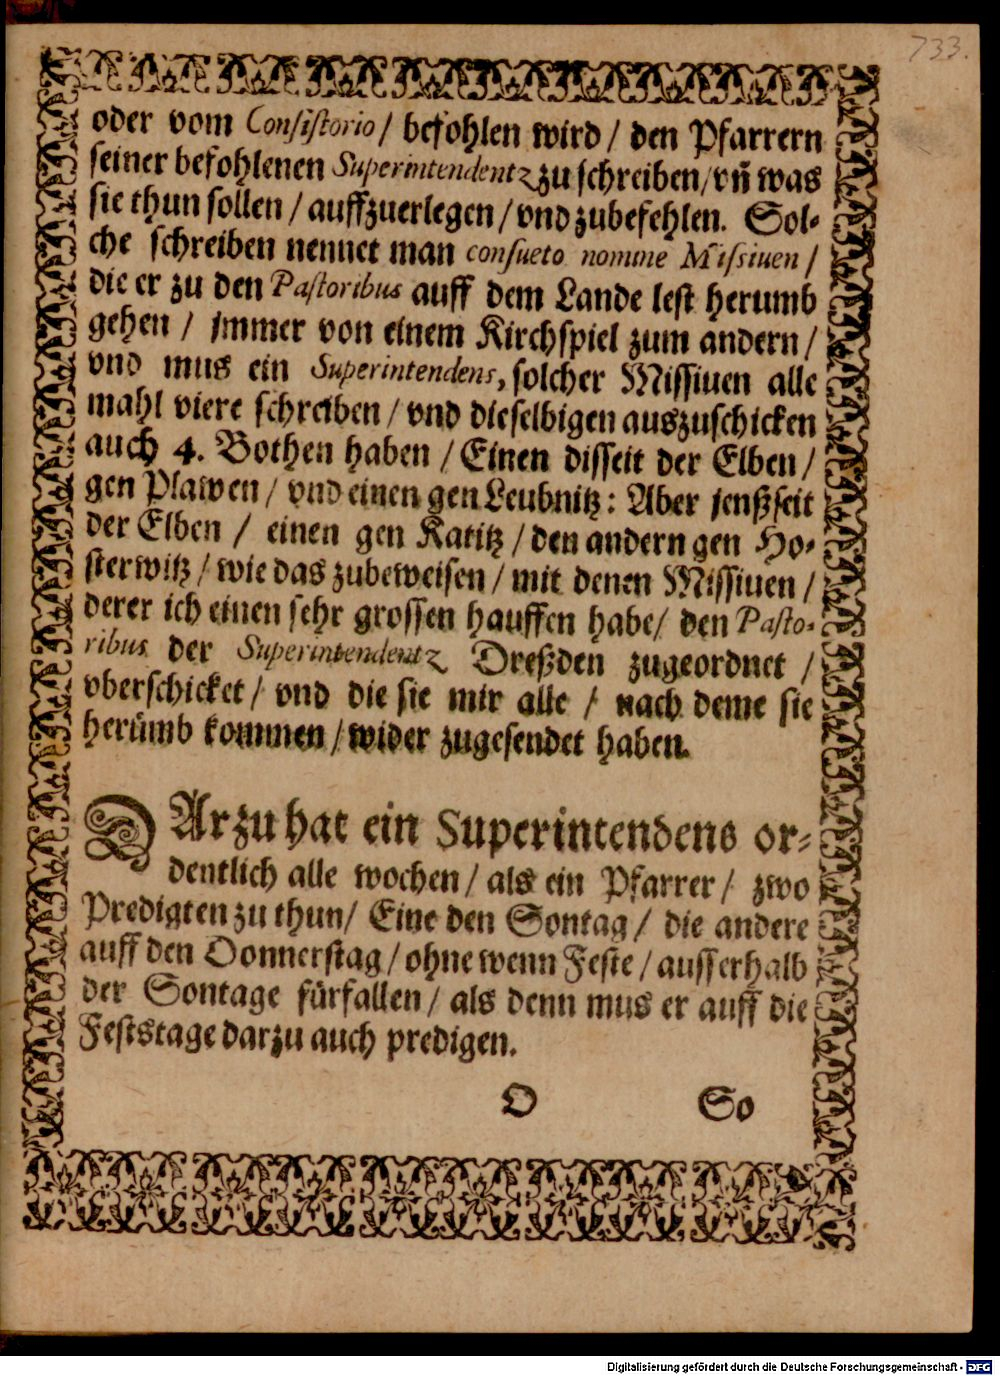 733.
oder vom Consistorio / befohlen wird / den Pfarrern
seiner befohlenen Superintendentz zu schreiben / vn̄ was
sie thun sollen / auffzuerlegen / vnd zubefehlen. Sol-
che schreiben nennet man consueto nomine Missiuen /
die er zu den Pastoribus auff dem Lande lest herumb
gehen / jmmer von einem Kirchspiel zum andern /
vnd mus ein Superintendens, solcher Missiuen alle
mahl viere schreiben / vnd dieselbigen auszuschicken
auch 4. Bothen haben / Einen disseit der Elben /
gen Plawen / vnd einen gen Leubnitz: Aber jenßseit
der Elben / einen gen Katitz / den andern gen Ho-
sterwitz / wie das zubeweisen / mit denen Missiuen /
derer ich einen sehr grossen hauffen habe / den Pasto-
ribus der Superintendentz Dreßden zugeordnet /
vberschicket / vnd die sie mir alle / nach deme sie
herümb kommen / wider zugesendet haben.
DArzu hat ein Superintendens or-
dentlich alle wochen / als ein Pfarrer / zwo
Predigten zu thun / Eine den Sontag / die andere
auff den Donnerstag / ohne wenn Feste / ausserhalb
der Sontage fürfallen / als denn mus er auff die
Feststage darzu auch predigen.
O So
Digitalisierung gefördert durch die Deutsche Forschungsgemeinschaft - DFG